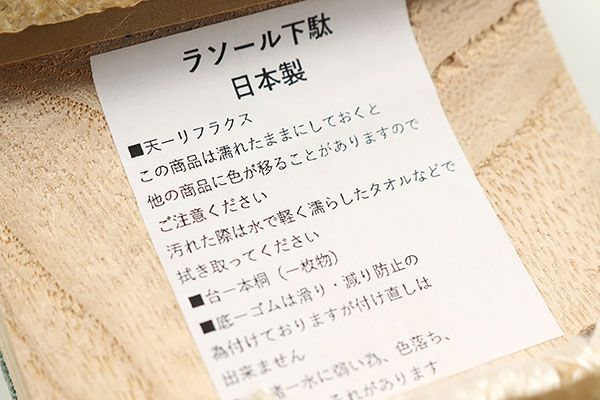 ラソール下駄
日本製
■天ーリフラクス
この商品は濡れたままにしておくと
他の商品に色が移ることがありますので
ご注意ください
汚れた際は水で軽く濡らしたタオルなどで
拭き取ってください
■台ー本桐（一枚物）
■底ーゴムは滑り・減り防止の
為付けておりますが付け直しは
出来ません
ー水に弱い為、色落ち、
それがあります